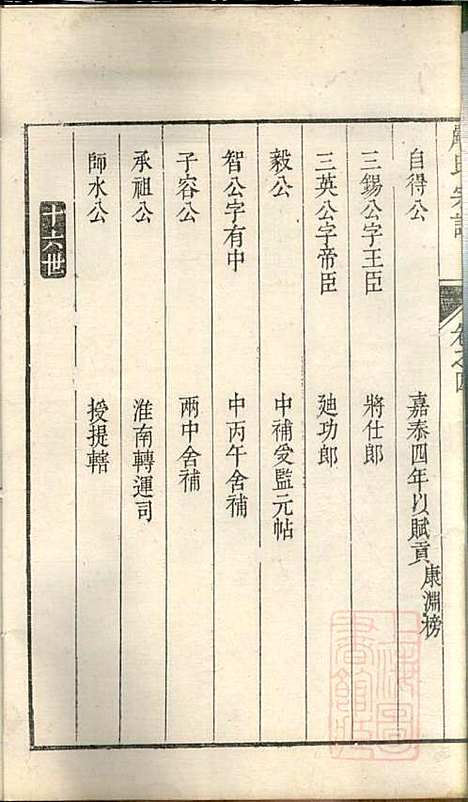 氏宗譜
卷之四
自得公 嘉泰四年以賦貢 康淵榜
三錫公字王臣 將仕郎
三英公字帝臣 廸功郎
毅公 中補受監元帖
智公字有中 中丙午舍補
子容公 兩中舍補
承祖公 淮南轉運司
師水公 授提轄
十六世
上海圖書館藏